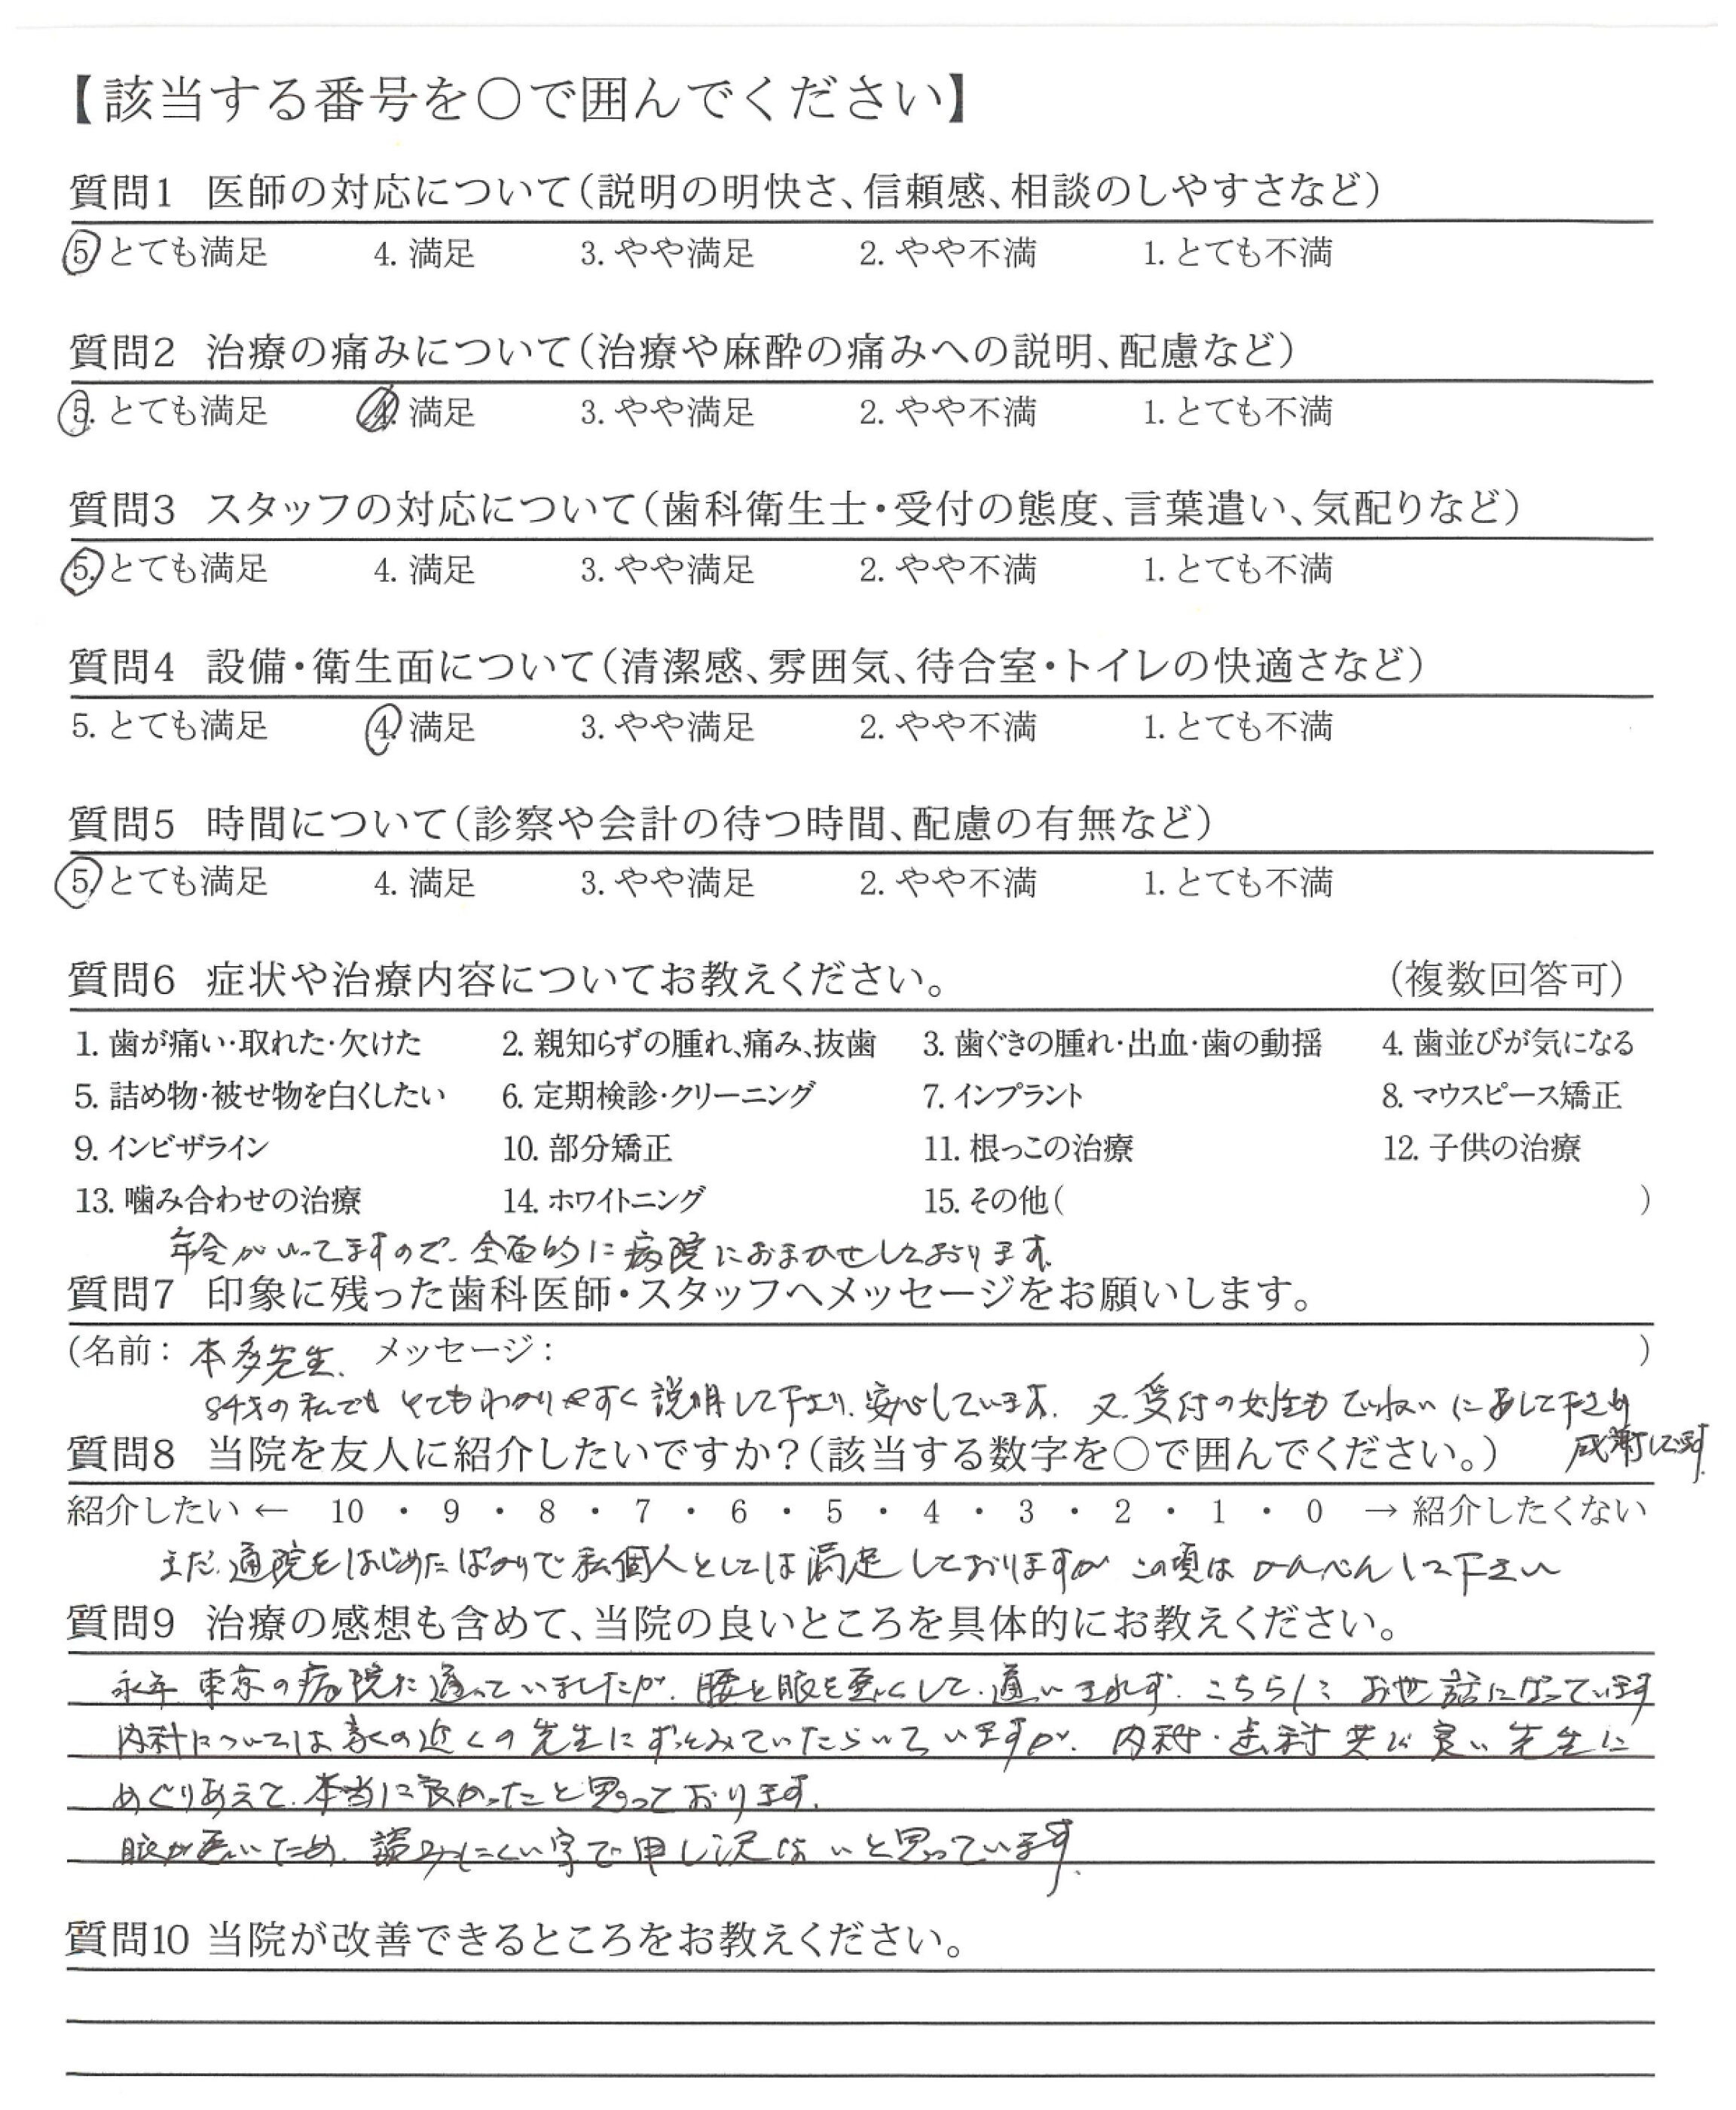 【該当する番号を○で囲んでください】
質問1 医師の対応について(説明の明快さ、信頼感、相談のしやすさなど)
5. とても満足 4. 満足 3. やや満足 2. やや不満 1. とても不満
質問2 治療の痛みについて(治療や麻酔の痛みへの説明、配慮など)
5. とても満足 4. 満足 3. やや満足 2. やや不満 1. とても不満
質問3 スタッフの対応について(歯科衛生士・受付の態度、言葉遣い、気配りなど)
5. とても満足 4. 満足 3. やや満足 2. やや不満 1. とても不満
質問4 設備・衛生面について(清潔感、雰囲気、待合室・トイレの快適さなど)
5. とても満足 4. 満足 3. やや満足 2. やや不満 1. とても不満
質問5 時間について(診察や会計の待つ時間、配慮の有無など)
5. とても満足 4. 満足 3. やや満足 2. やや不満 1. とても不満
質問6 症状や治療内容についてお教えください。 (複数回答可)
1. 歯が痛い・取れた・欠けた 2. 親知らずの腫れ、痛み、抜歯 3. 歯ぐきの腫れ・出血・歯の動揺 4. 歯並びが気になる
5. 詰め物・被せ物を白くしたい 6. 定期検診・クリーニング 7. インプラント 8. マウスピース矯正
9. インビザライン 10. 部分矯正 11. 根っこの治療 12. 子供の治療
13. 噛み合わせの治療 14. ホワイトニング 15. その他( )
年令がいってますので、全面的に病院におまかせしております。
質問7 印象に残った歯科医師・スタッフへメッセージをお願いします。
(名前: 本多先生. メッセージ: )
84才の私でもとてもわかりやすく説明して下さり、安心しています。又、受付の女性もていねいに して下さり
感謝してます。
質問8 当院を友人に紹介したいですか?(該当する数字を○で囲んでください。)
紹介したい ← 10 ・ 9 ・ 8 ・ 7 ・ 6 ・ 5 ・ 4 ・ 3 ・ 2 ・ 1 ・ 0 → 紹介したくない
まだ、通院をはじめたばかりで私個人としては満足しておりますがこの項はかんべんして下さい
質問9 治療の感想も含めて、当院の良いところを具体的にお教えください。
永年東京の病院に通っていましたが、腰と眼を悪くして、通いきれず、こちらにお世話になっています
内科については家の近くの先生にずっとみていただいていますが、内科・歯科共に良い先生に
めぐりあえて、本当に良かったと思っております。
眼が悪いため、読みにくい字で申し訳ないと思っています。
質問10 当院が改善できるところをお教えください。